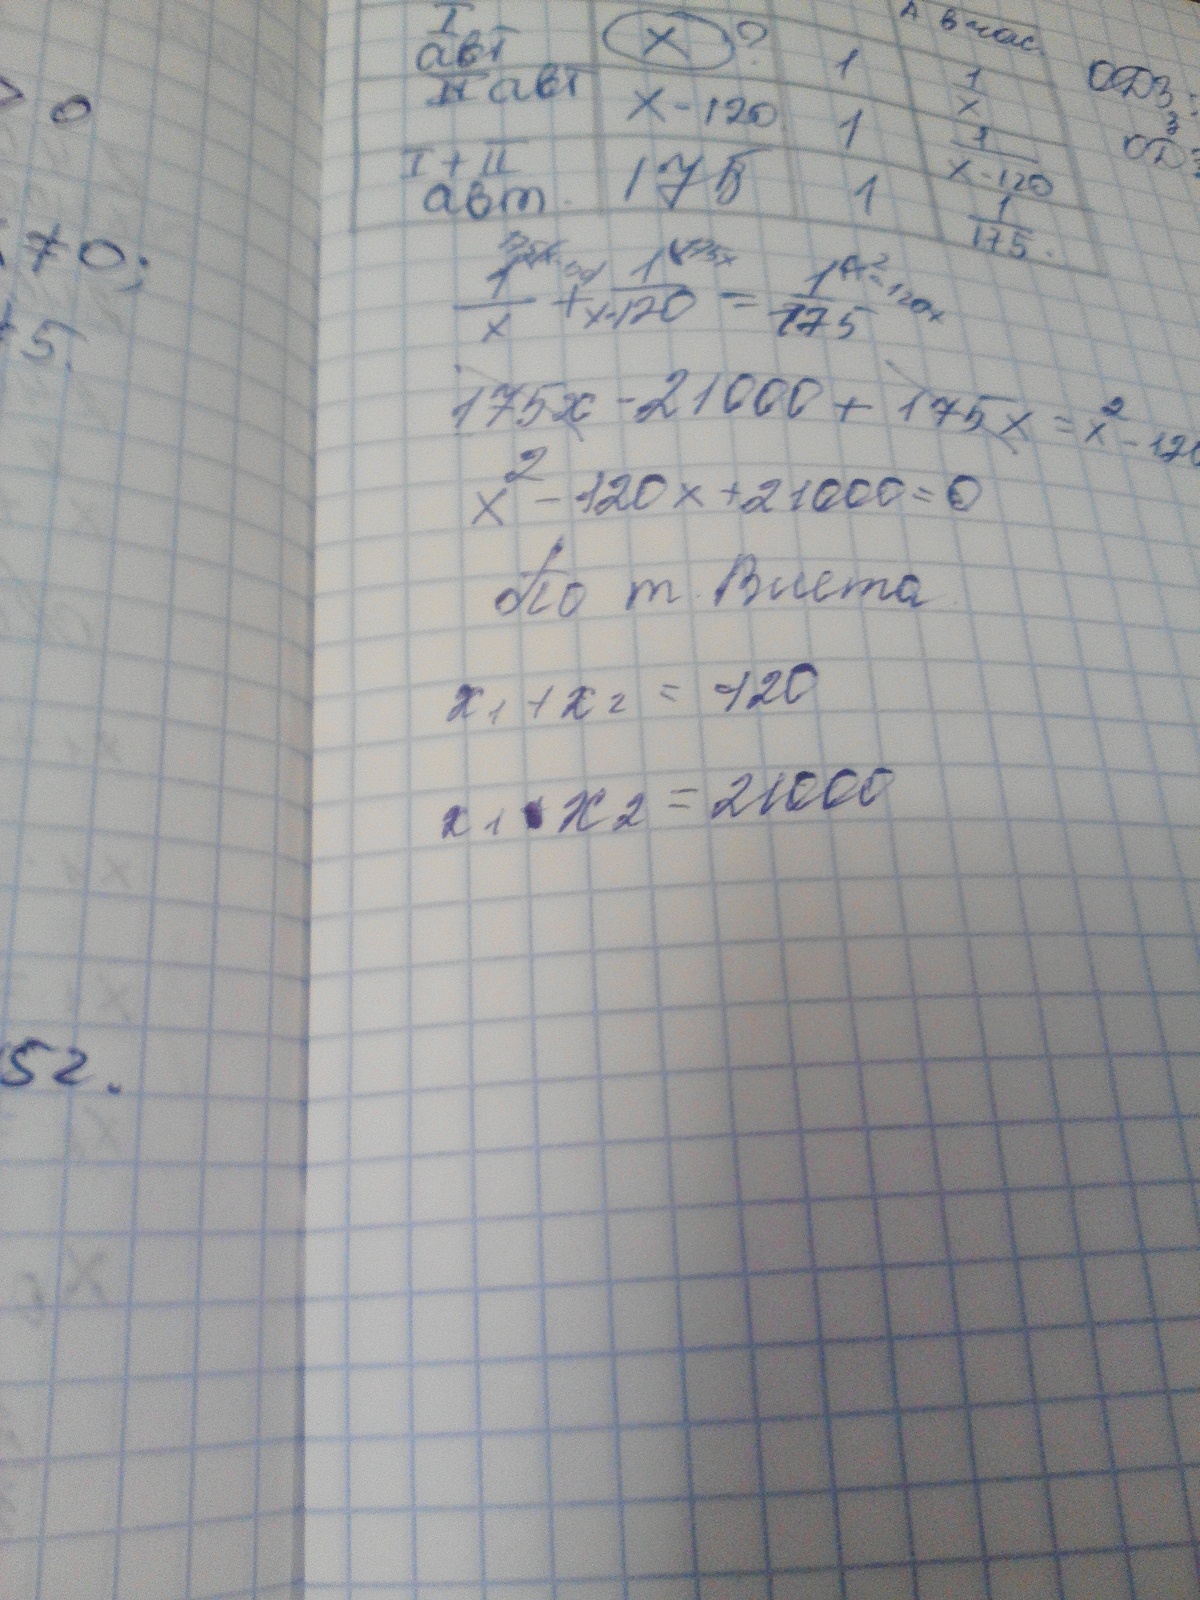 > 0
70;
5.
52.
А в час.
I авт x ? 1 1/x ОДЗ:
II авт x - 120 1 1/x-120 ОДЗ
I + II авт. 175 1 1/175.
1/x + 1/x-120 = 1/175
175x - 21000 + 175x = x² - 120
x² - 120x + 21000 = 0
По т. Виета
x₁ + x₂ = 120
x₁ • x₂ = 21000